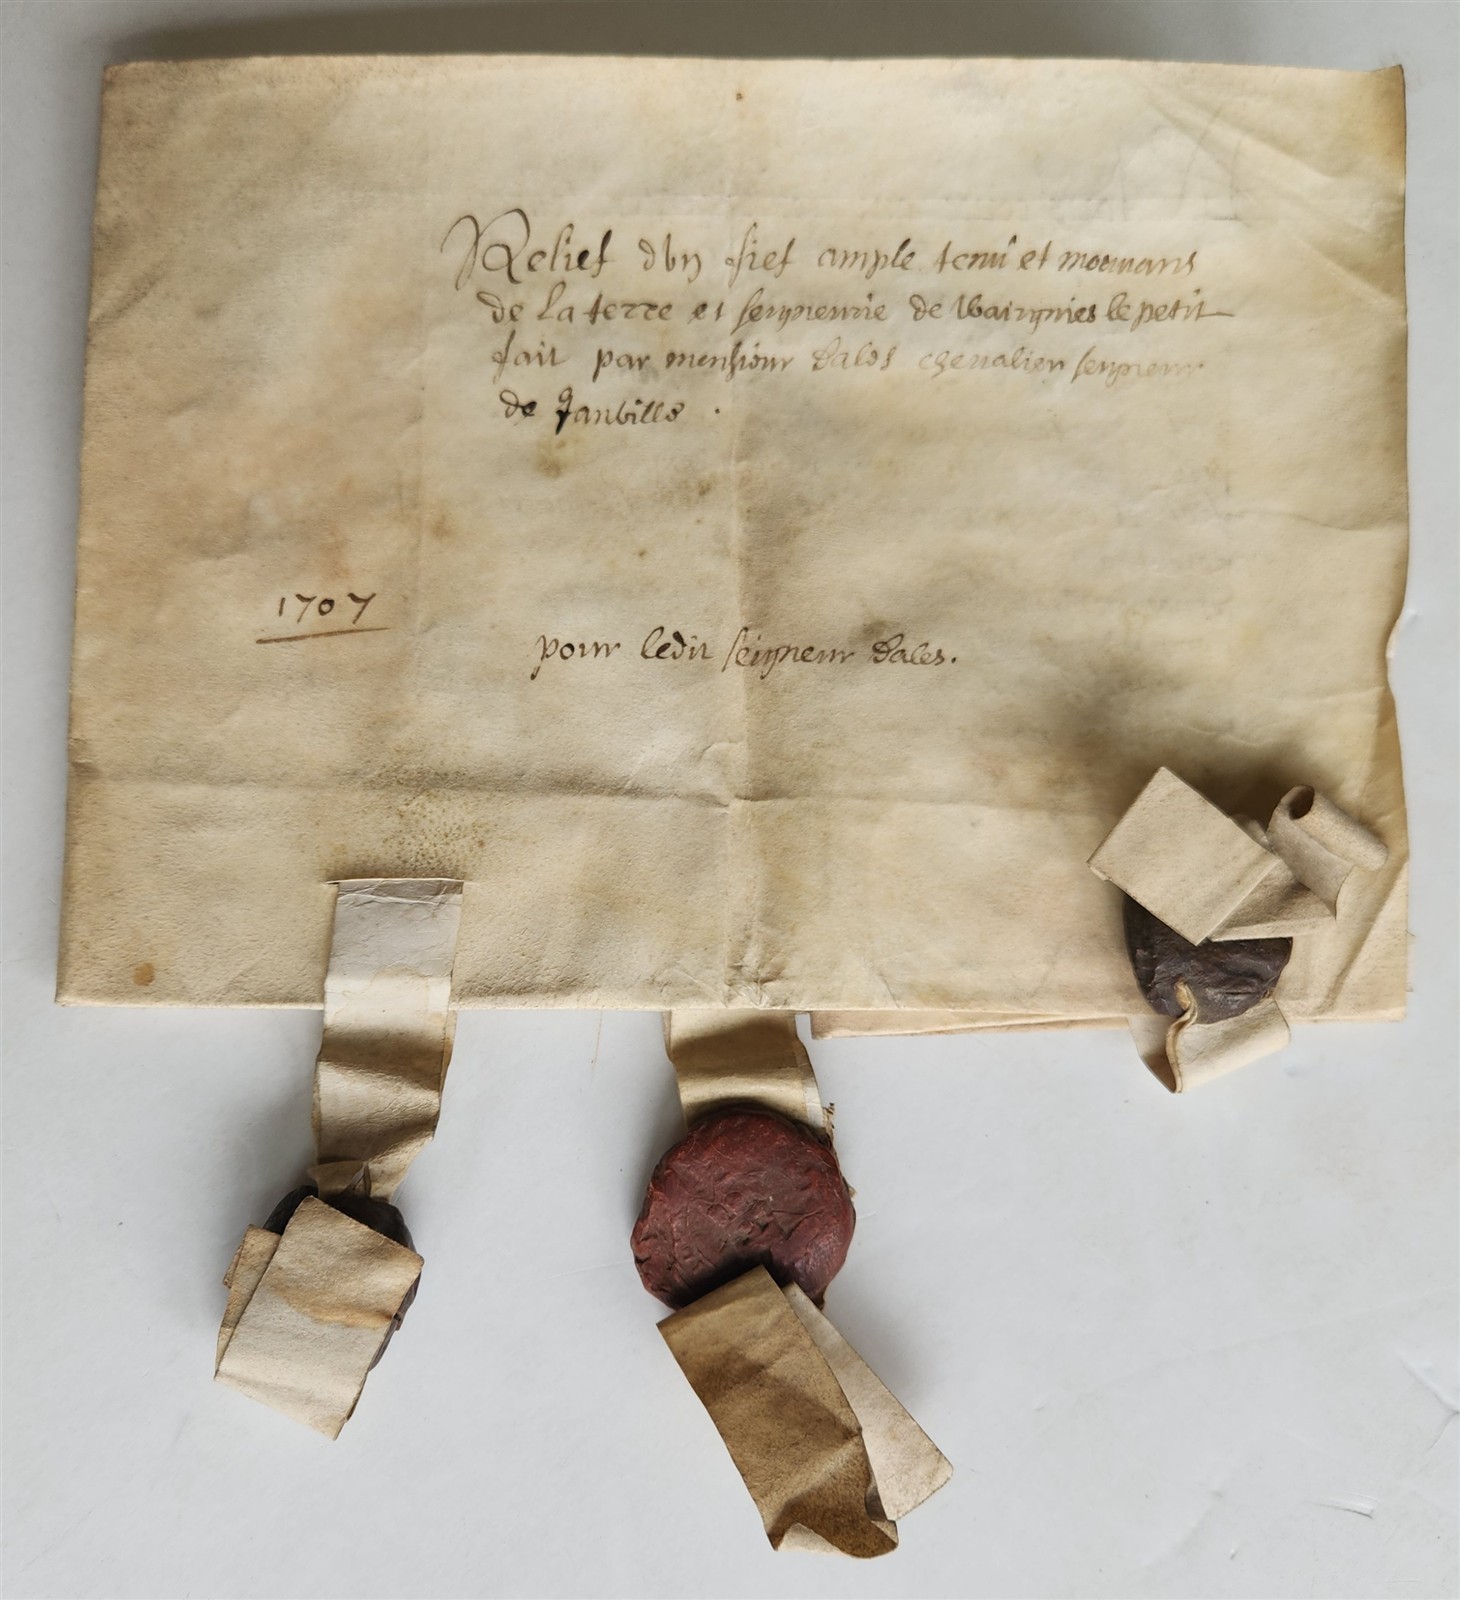 Relief dvn fief ample tenu et mouuans
de la terre et seigneurie de Wairgnies le petit
fait par monsieur dales chevalier seigneur
de
1707
pour ledit seigneur dales.